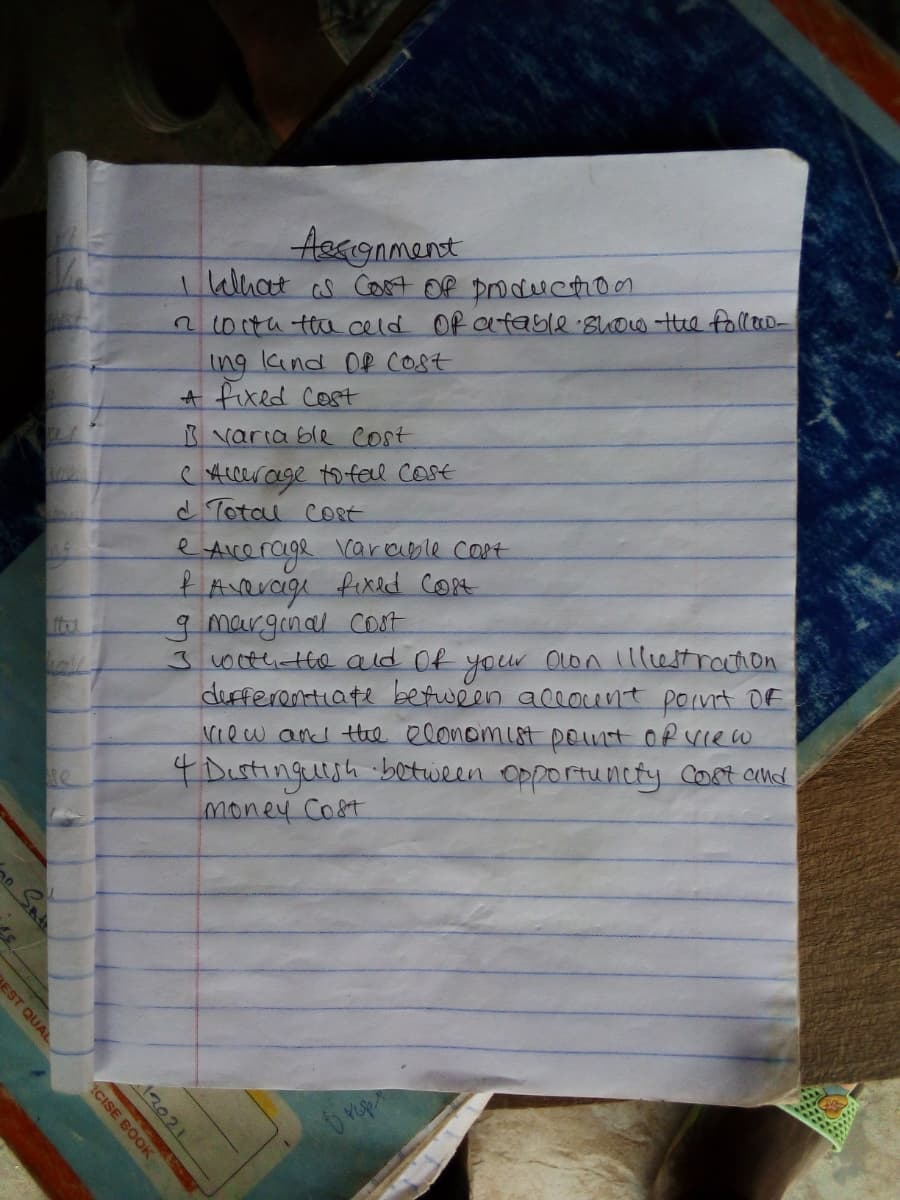 Assignment
1 What is Cost OF production
2 with the aid OF a table show the follow-
ing kind OF Cost
A fixed Cost
B variable Cost
C Average total Cost
d Total Cost
e Average Variable Cost
f Average fixed Cost
g marginal Cost
3 with the aid Of your own illustration
differentiate between account point OF
view and the economist point of view
4 Distinguish between opportunity Cost and
money Cost
EST QUAL
CISE BOOK
2021